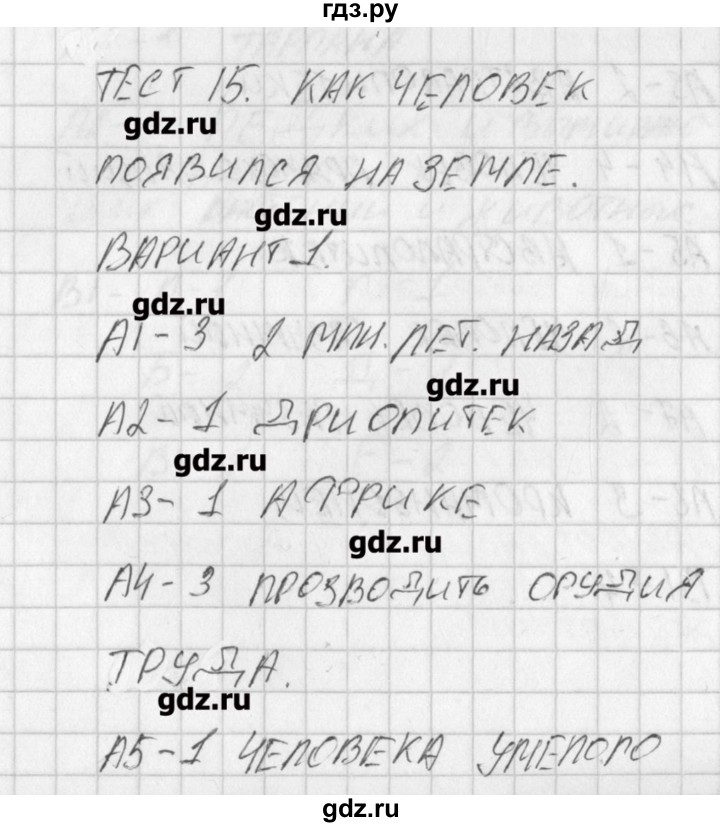 гдз.ру
ТЕСТ 15. КАК ЧЕЛОВЕК
gdz.ru
ПОЯВИЛСЯ НА ЗЕМЛЕ.
gdz.ru
ВАРИАНТ 1.
gdz.ru
А1-3 2 МЛН. ЛЕТ. НАЗАД
gdz.ru
А2-1 ДРИОПИТЕК
gdz.ru
А3-1 АФРИКЕ
gdz.ru
А4-3 ПРОЗВОДИТЬ ОРУДИЯ
ТРУДА.
gdz.ru
А5-1 ЧЕЛОВЕКА УМЕЛОГО
gdz.ru